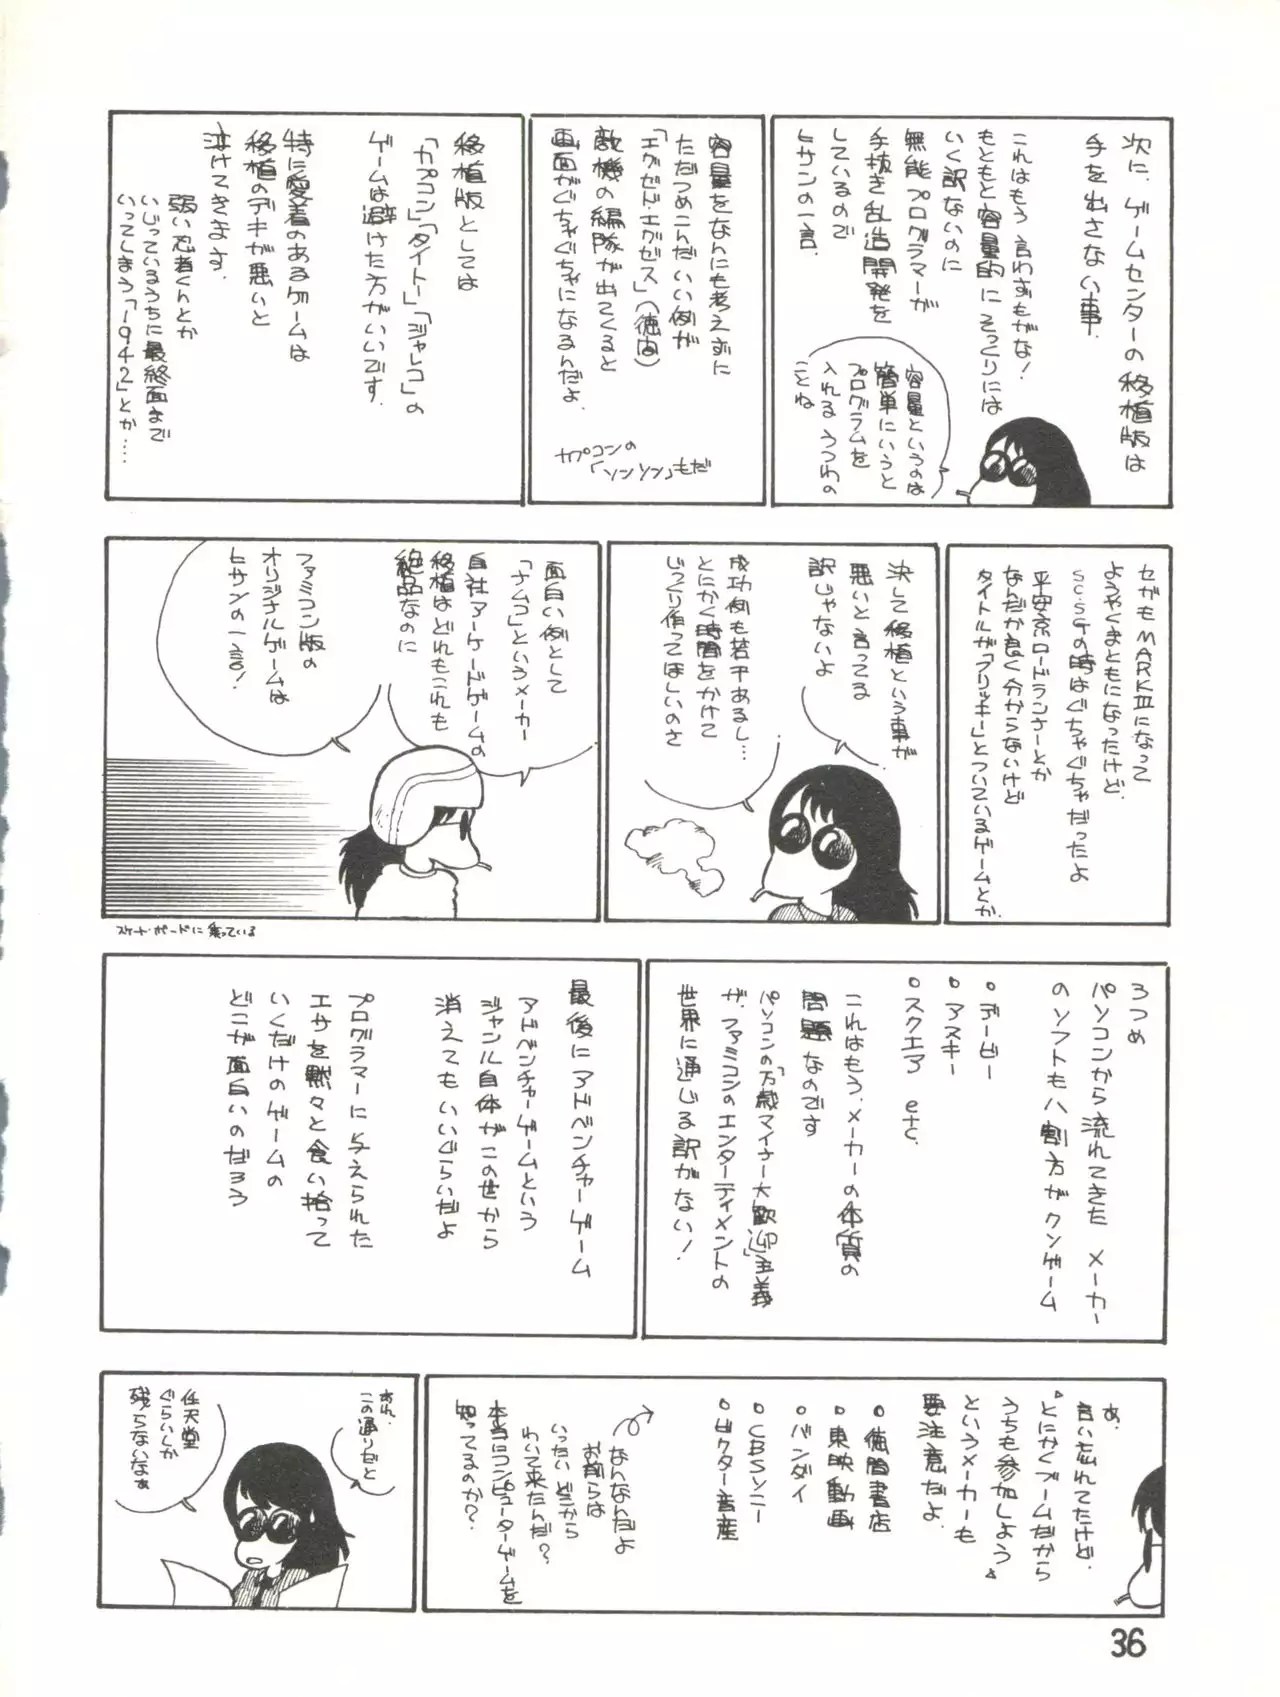 次に、ゲームセンターの移植版は
手を出さない事.
これはもう言わずもがな!
もともと容量的にそっくりには
いく訳ないのに
無能プログラマーが
手抜き乱造開発を
しているので
ヒサンの一言.
容量というのは
簡単にいうと
プログラムを
入れるうつわの
ことね
容量をなんにも考えずに
ただつめこんだいい例が
「エグゼド・エグゼス」(徳間)
敵機の編隊が出てくると
画面がぐちゃぐちゃになるんだよ.
カプコンの
「ソンソン」もだ
移植版としては
「カプコン」「タイトー」「ジャレコ」の
ゲームは避けた方がいいです.
特に愛着のあるゲームは
移植のデキが悪いと
泣けてきます.
弱い忍者くんとか
いじっているうちに最終面まで
いってしまう「1942」とか……
セガもMARKⅢになって
ようやくまともになったけど.
SC・SGの時はぐちゃぐちゃだったよ
平安京ロードランナーとか
なんだか良く分からないけど
タイトルが「フリッキー」とついているゲームとか.
決して移植という事が
悪いと言ってる
訳じゃないよ
成功例も若干あるし…
とにかく時間をかけて
じっくり作ってほしいのさ
面白い例として
「ナムコ」というメーカー
自社アーケードゲームの
移植はどれもこれも
絶品なのに
ファミコン版の
オリジナルゲームは
ヒサンの一言!
スケート・ボードに乗っている
3つめ
パソコンから流れてきた メーカー
のソフトも八割方がクソゲーム
○デービー
○アスキー
○スクエア etc.
これはもう、メーカーの体質の
問題なのです
パソコンの「万歳マイナー大歓迎」主義
が、ファミコンのエンターティメントの
世界に通じる訳がない!
最後にアドベンチャーゲーム
アドベンチャーゲームという
ジャンル自体がこの世から
消えてもいいぐらいだよ
プログラマーに与えられた
エサを黙々と食い拾って
いくだけのゲームの
どこが面白いのだろう
あ.
言い忘れてたけど.
"とにかくブームだから
うちも参加しよう"
というメーカーも
要注意だよ.
○徳間書店
○東映動画
○バンダイ
○CBSソニー
○ビクター音産
なんなんだよ
お前らは
いったいどこから
わいて来たんだ?
本当にコンピューターゲームを
知ってるのか?
あれ.
この通りだと
任天堂
ぐらいしか
残らないなぁ
36